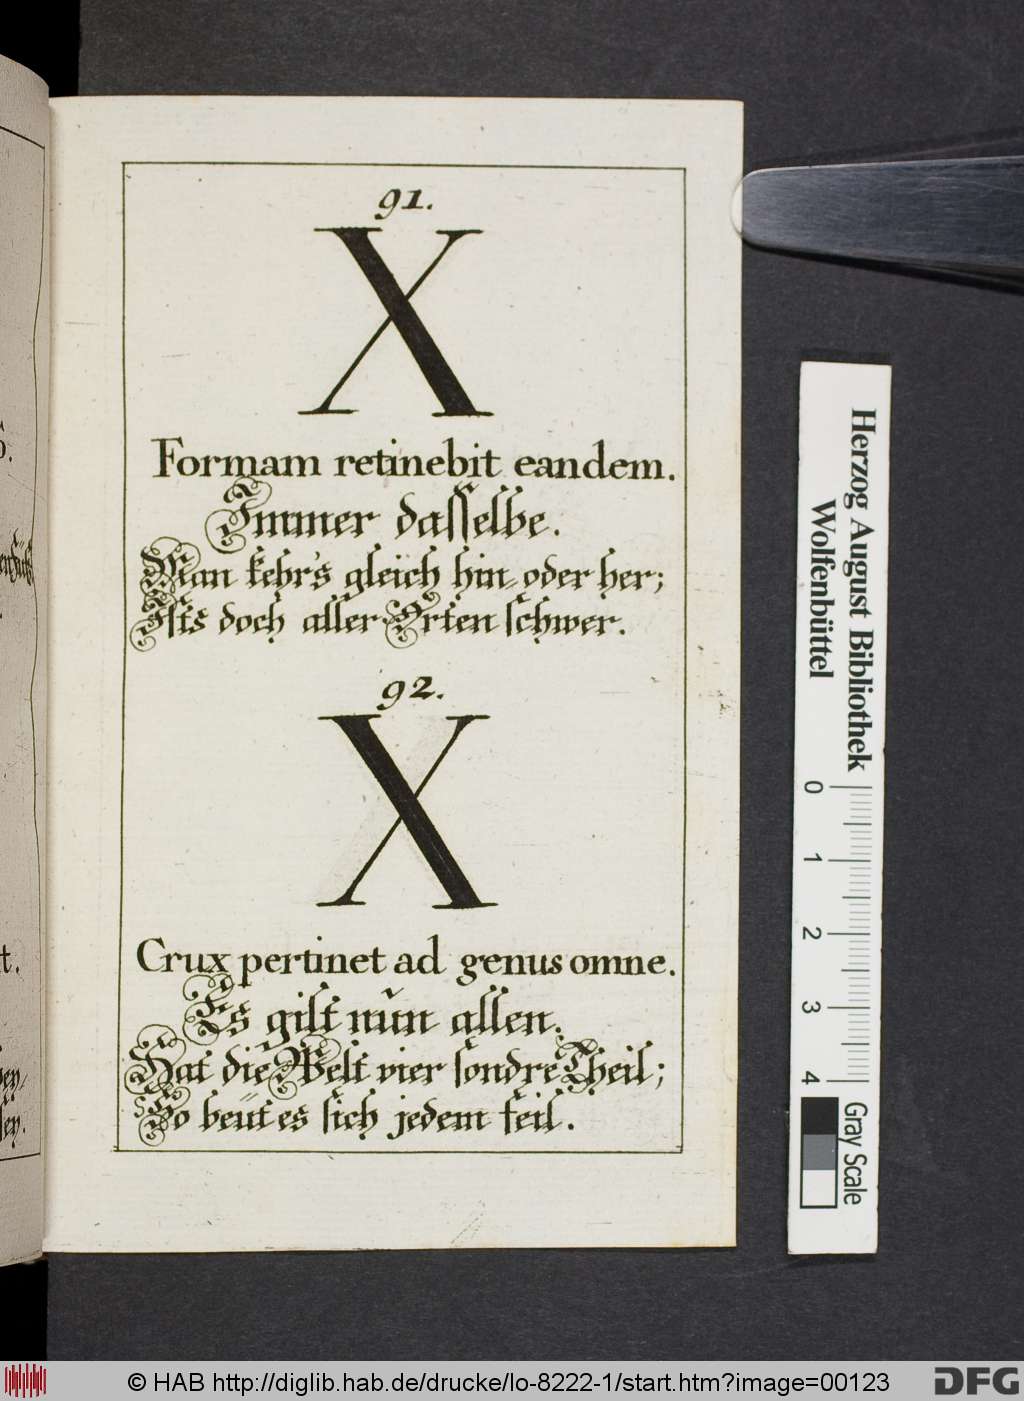 91.
X
Formam retinebit eandem.
Immer dasselbe.
Man kehr's gleich hin oder her;
Ists doch aller Orten schwer.
92.
X
Crux pertinet ad genus omne.
Es gilt nun allen.
Hat die Welt vier sondre Theil;
So beut es sich jedem feil.
Herzog August Bibliothek
Wolfenbüttel
0
1
2
3
4
Gray Scale
© HAB http://diglib.hab.de/drucke/lo-8222-1/start.htm?image=00123
DFG